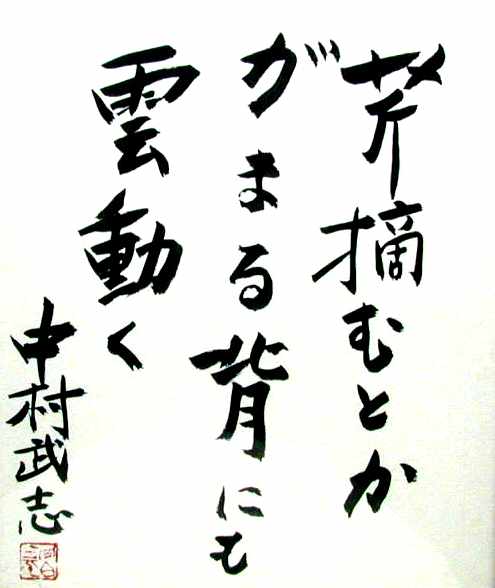 芹摘むとか
がまる背にも
雲動く
中村武志